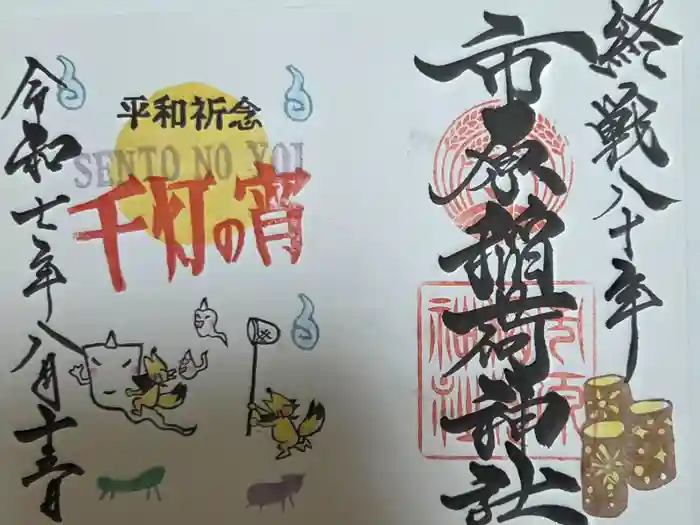 終戦八十年
市原稲荷神社
平和祈念
SENTO NO YOI
千灯の宵
令和七年八月十三日